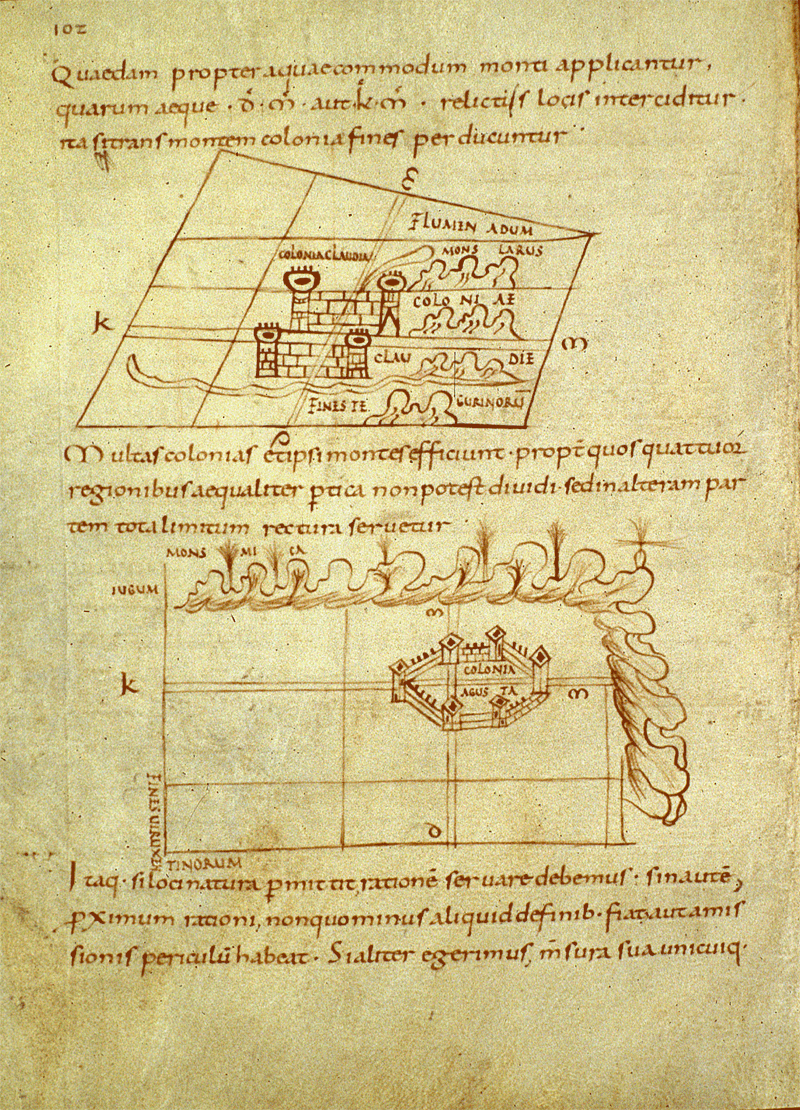 102
Quaedam propter aquae commodum monti applicantur,
quarum aeque · D̄ · M̄ · aut · k̄ · M̄ · relictis locis interciditur ·
ita si trans montem colonia fines perducuntur
FLUMEN ADUM
COLONIA CLAUDIA
MONS LARUS
COLONIAE
k
M
CLAU DIE
FINES TE GURINORŪ
Multas colonias et ipsi montes efficiunt · propt̄ quos quattuor
regionibus aequaliter ꝑtica non potest diuidi · sed in alteram par
tem tota limitum rectura seruetur
MONS MI CA
IUGUM
m
COLONIA
k
AGUS TA
m
D
TINORUM
Itaq · si loci natura ꝑmittit, rationē seruare debemus · sin autē,
ꝓximum rationi, non quo minus aliquid definib · fiat, aut amis
sionis periculū habeat · Si aliter egerimus, m̄sura sua unicuiq ·